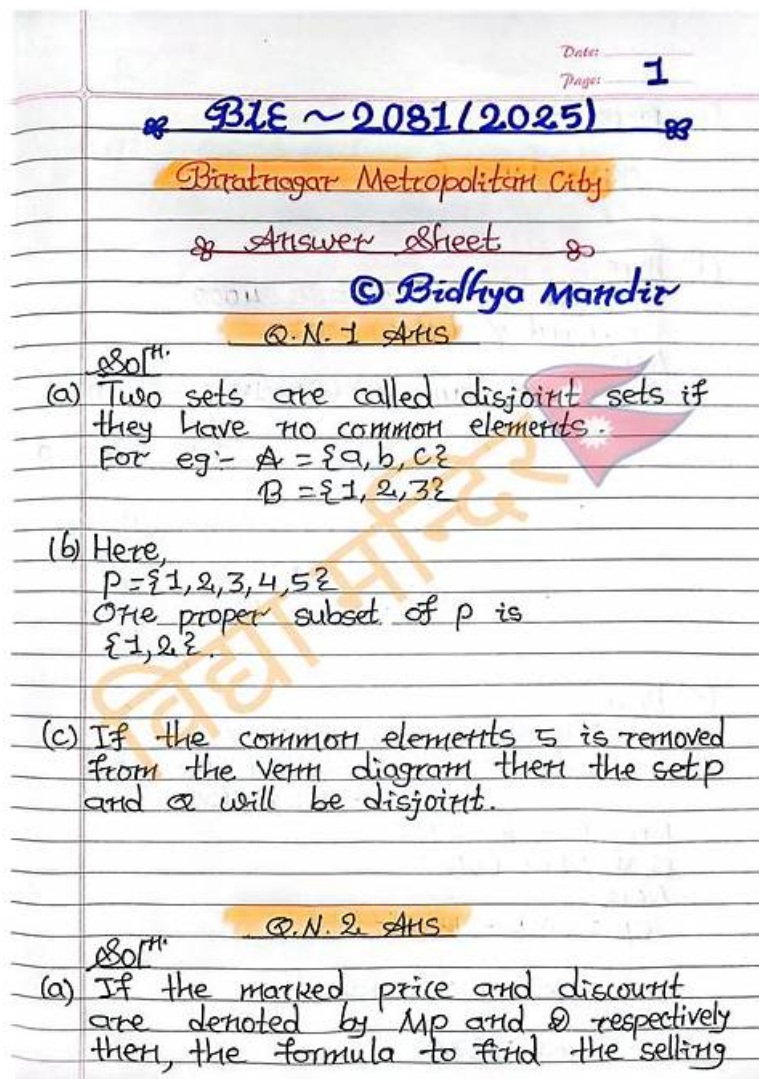 Date:
Page: 1
BLE ~ 2081 (2025)
Biratnagar Metropolitan City
Answer Sheet
© Bidhya Mandir
Q.N. 1 Ans
Solⁿ.
(a) Two sets are called disjoint sets if
they have no common elements.
For eg:- A = {a, b, c}
B = {1, 2, 3}
(b) Here,
P = {1, 2, 3, 4, 5}
One proper subset of p is
{1, 2}.
(c) If the common elements 5 is removed
from the venn diagram then the set p
and Q will be disjoint.
Q.N. 2 Ans
Solⁿ.
(a) If the marked price and discount
are denoted by Mp and D respectively
then, the formula to find the selling
विद्या मन्दिर